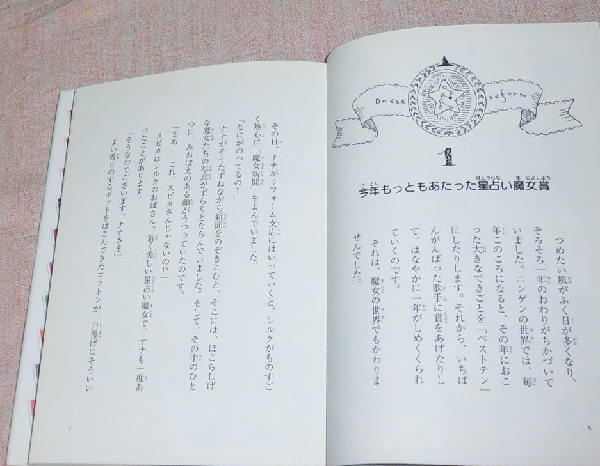 Dress Reform
1
今年もっともあたった星占い魔女賞
つめたい風がふく日が多くなり、
そろそろ一年のおわりがちかづいて
いました。ニンゲンの世界では、毎
年このころになると、その年におこ
った大きなできごとを「ベストテン」
にしたりします。それから、いちば
んがんばった歌手に賞をあげたりし
て、はなやかに一年がしめくくられ
ていくのです。
それは、魔女の世界でもかわりま
せんでした。
6
その日、ナナがリフォーム支店にはいっていくと、シルクがものすご
く熱心に「魔女新聞」をよんでいました。
「なにがのってるの？」
ナナがそうたずねながら新聞をのぞきこむと、そこには、ほこらしげ
な魔女たちの写真がずらりとならんでいました。そして、その中のひと
つに、みおぼえのある顔がうつっていたのです。
「まあ、これ、スピカさんじゃないの!?」
スピカはシルクのおばさん。若く美しい星占い魔女で、ナナも一度あ
ったことがあります。
「そうなのでございます、ナナさま！」
よい香りのするポットをはこんできたコットンが、自慢げにそういい
7